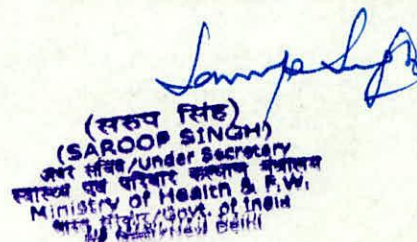 (सरुप सिंह)
(SAROOP SINGH)
अवर सचिव/Under Secretary
स्वास्थ्य एवं परिवार कल्याण मंत्रालय
Ministry of Health & F.W.
भारत सरकार/Govt. of India
नई दिल्ली/New Delhi